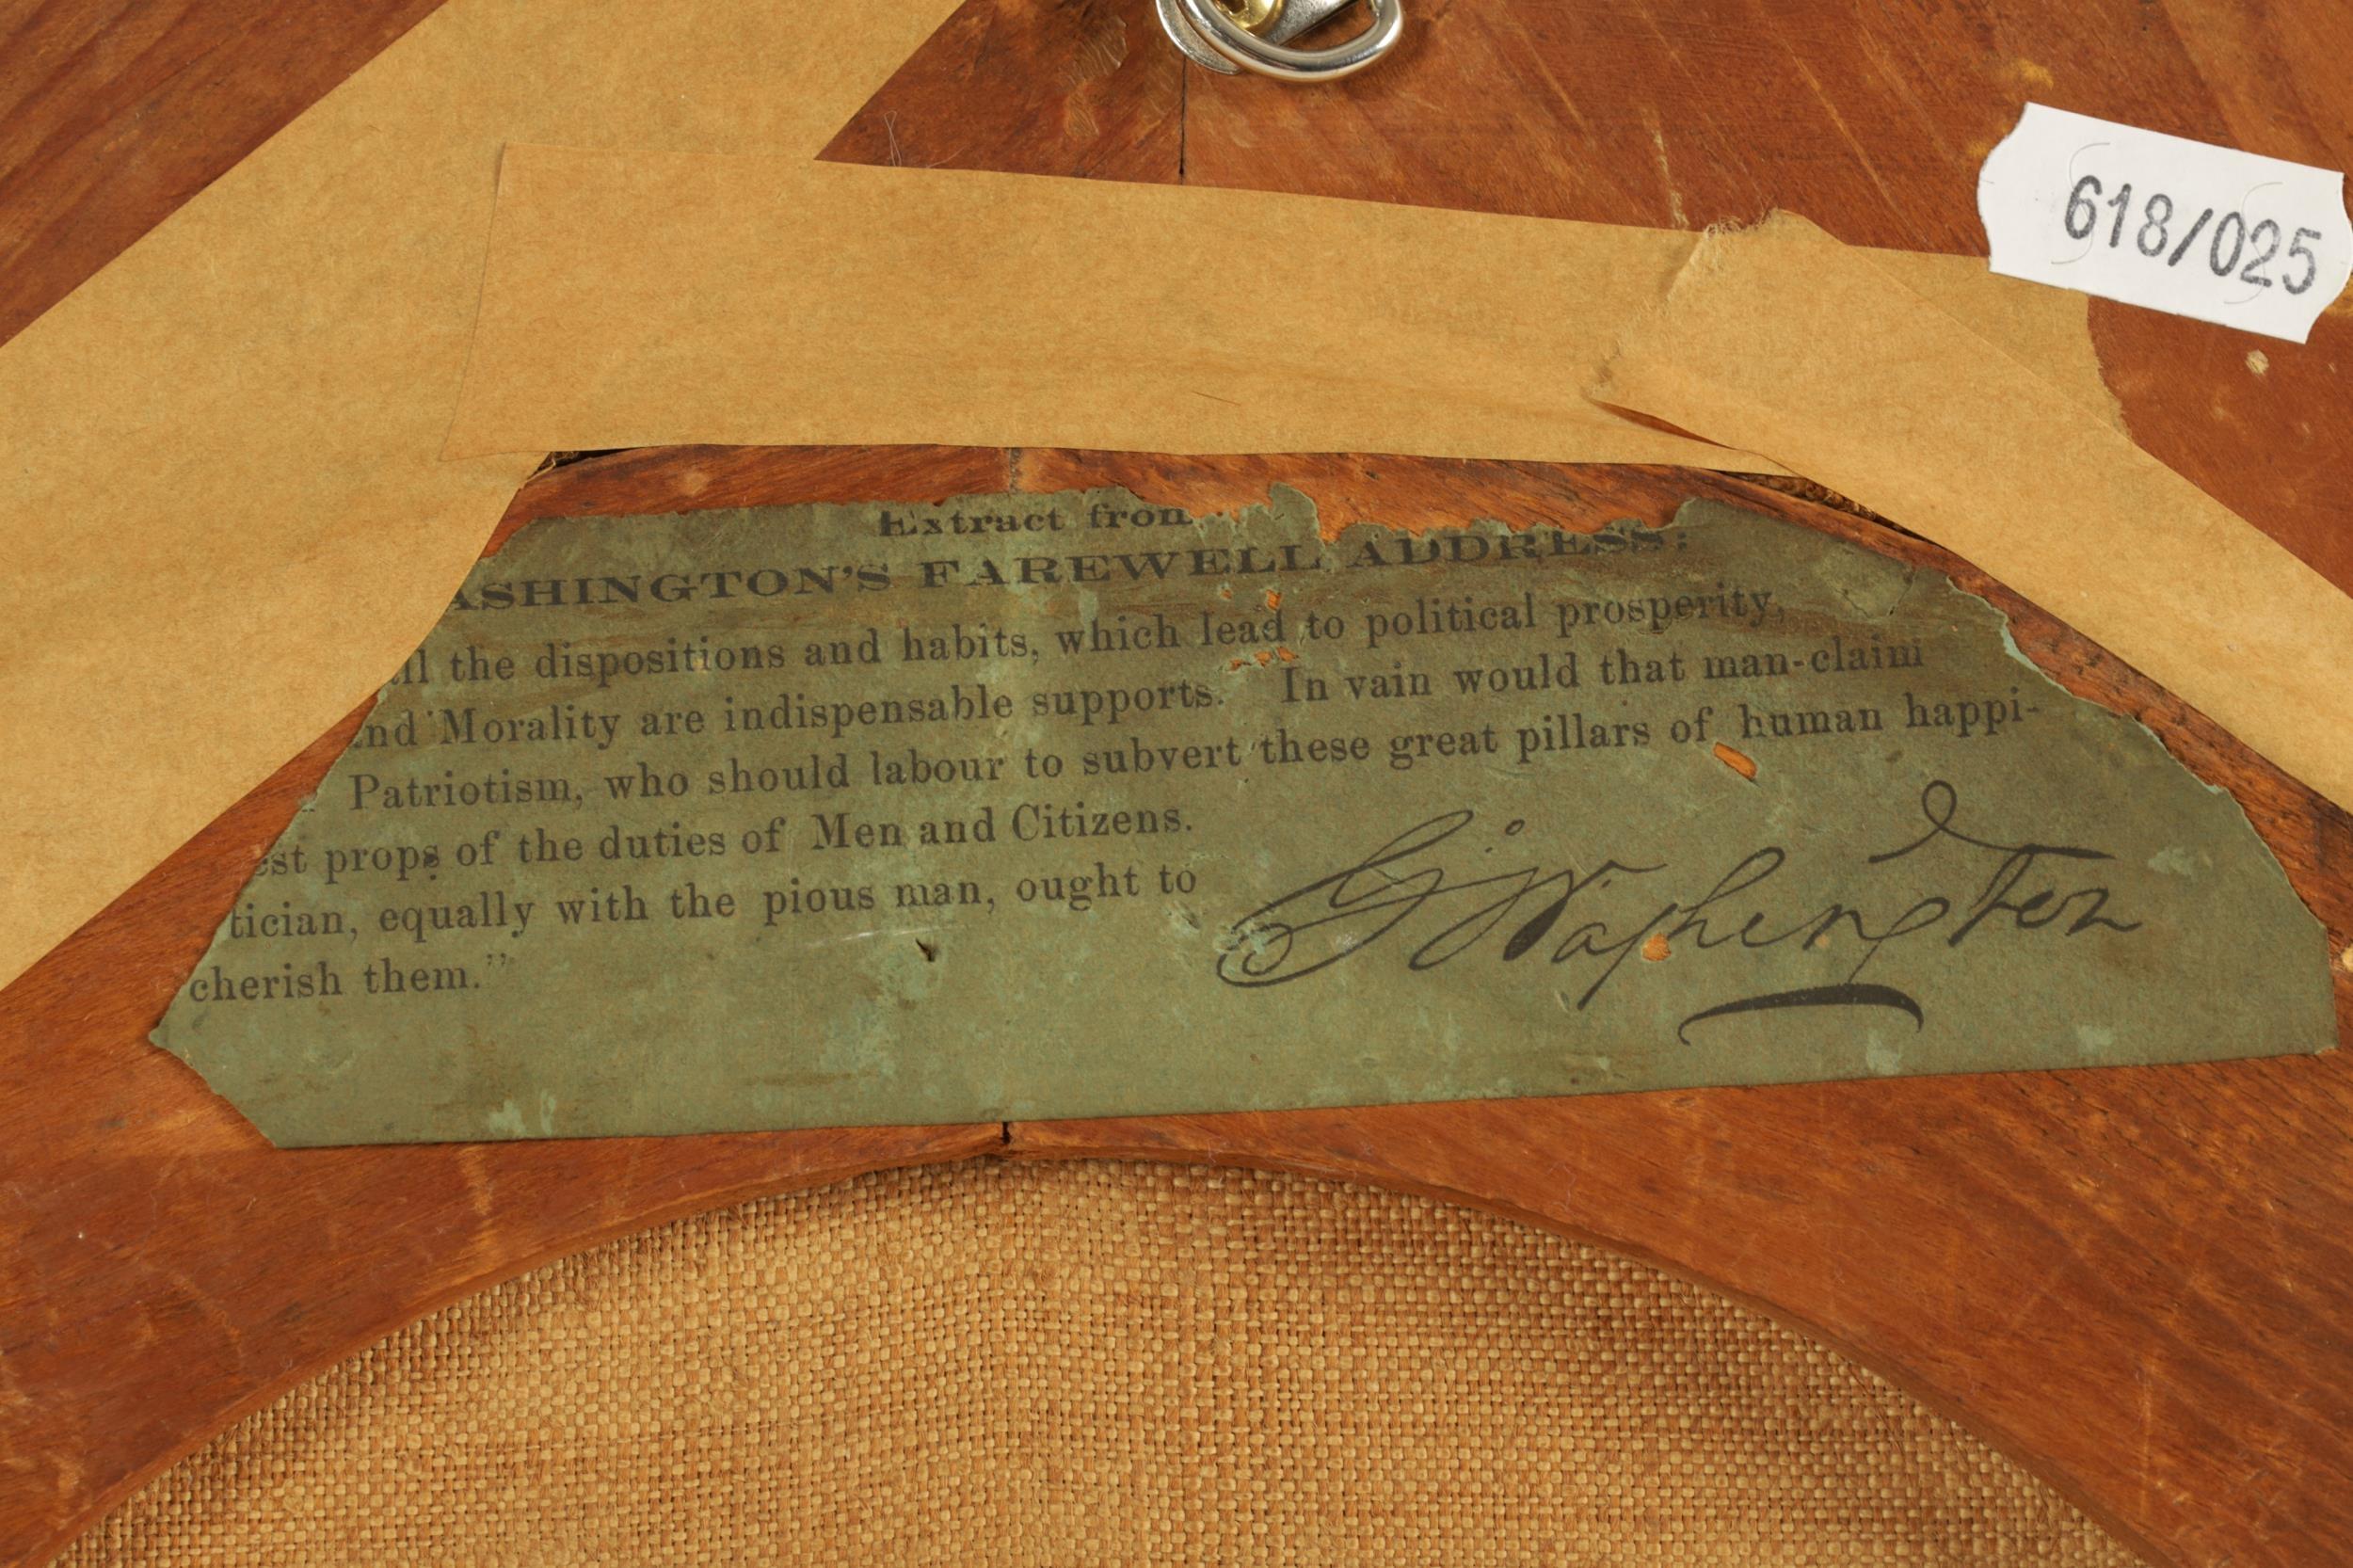 618/025
Extract from
ASHINGTON'S FAREWELL ADDRESS:
ll the dispositions and habits, which lead to political prosperity,
nd Morality are indispensable supports. In vain would that man-claim
Patriotism, who should labour to subvert these great pillars of human happi-
est props of the duties of Men and Citizens.
tician, equally with the pious man, ought to
cherish them."
G Washington